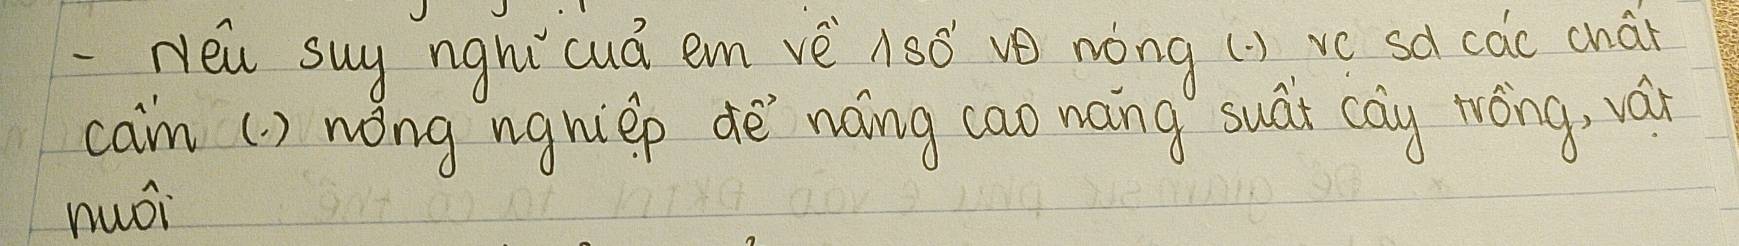 - Nêu suy nghĩ của em về 1 số vđ nóng (.) vc sd các chất
cấm (.) nông nghiệp để nâng cao năng suất cây trồng, vật
nuôi